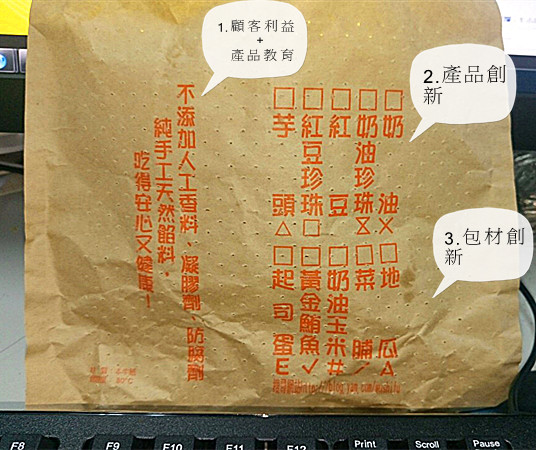 1.顧客利益
+
產品教育
2.產品創
新
3.包材創
新
□奶油×
□奶油珍珠⧖
□紅豆
□紅豆珍珠□
□芋頭△
□地瓜A
□菜脯／
□奶油玉米#
□黃金鮪魚✓
□起司蛋E
不添加人工香料、凝膠劑、防腐劑
純手工天然餡料，
吃得安心又健康！
80°C
F8
F9
F10
F11
F12
Print
Scroll
Pause